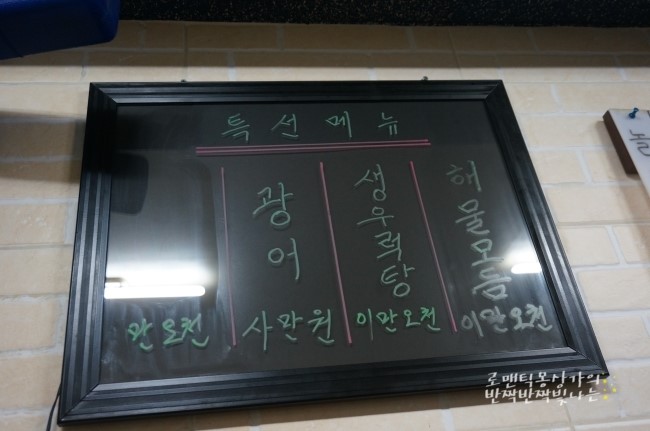 특선메뉴
광어
사만원
생우럭탕
이만오천
해물모듬
이만오천
만오천
로맨틱몽상가의
반짝반짝빛나는